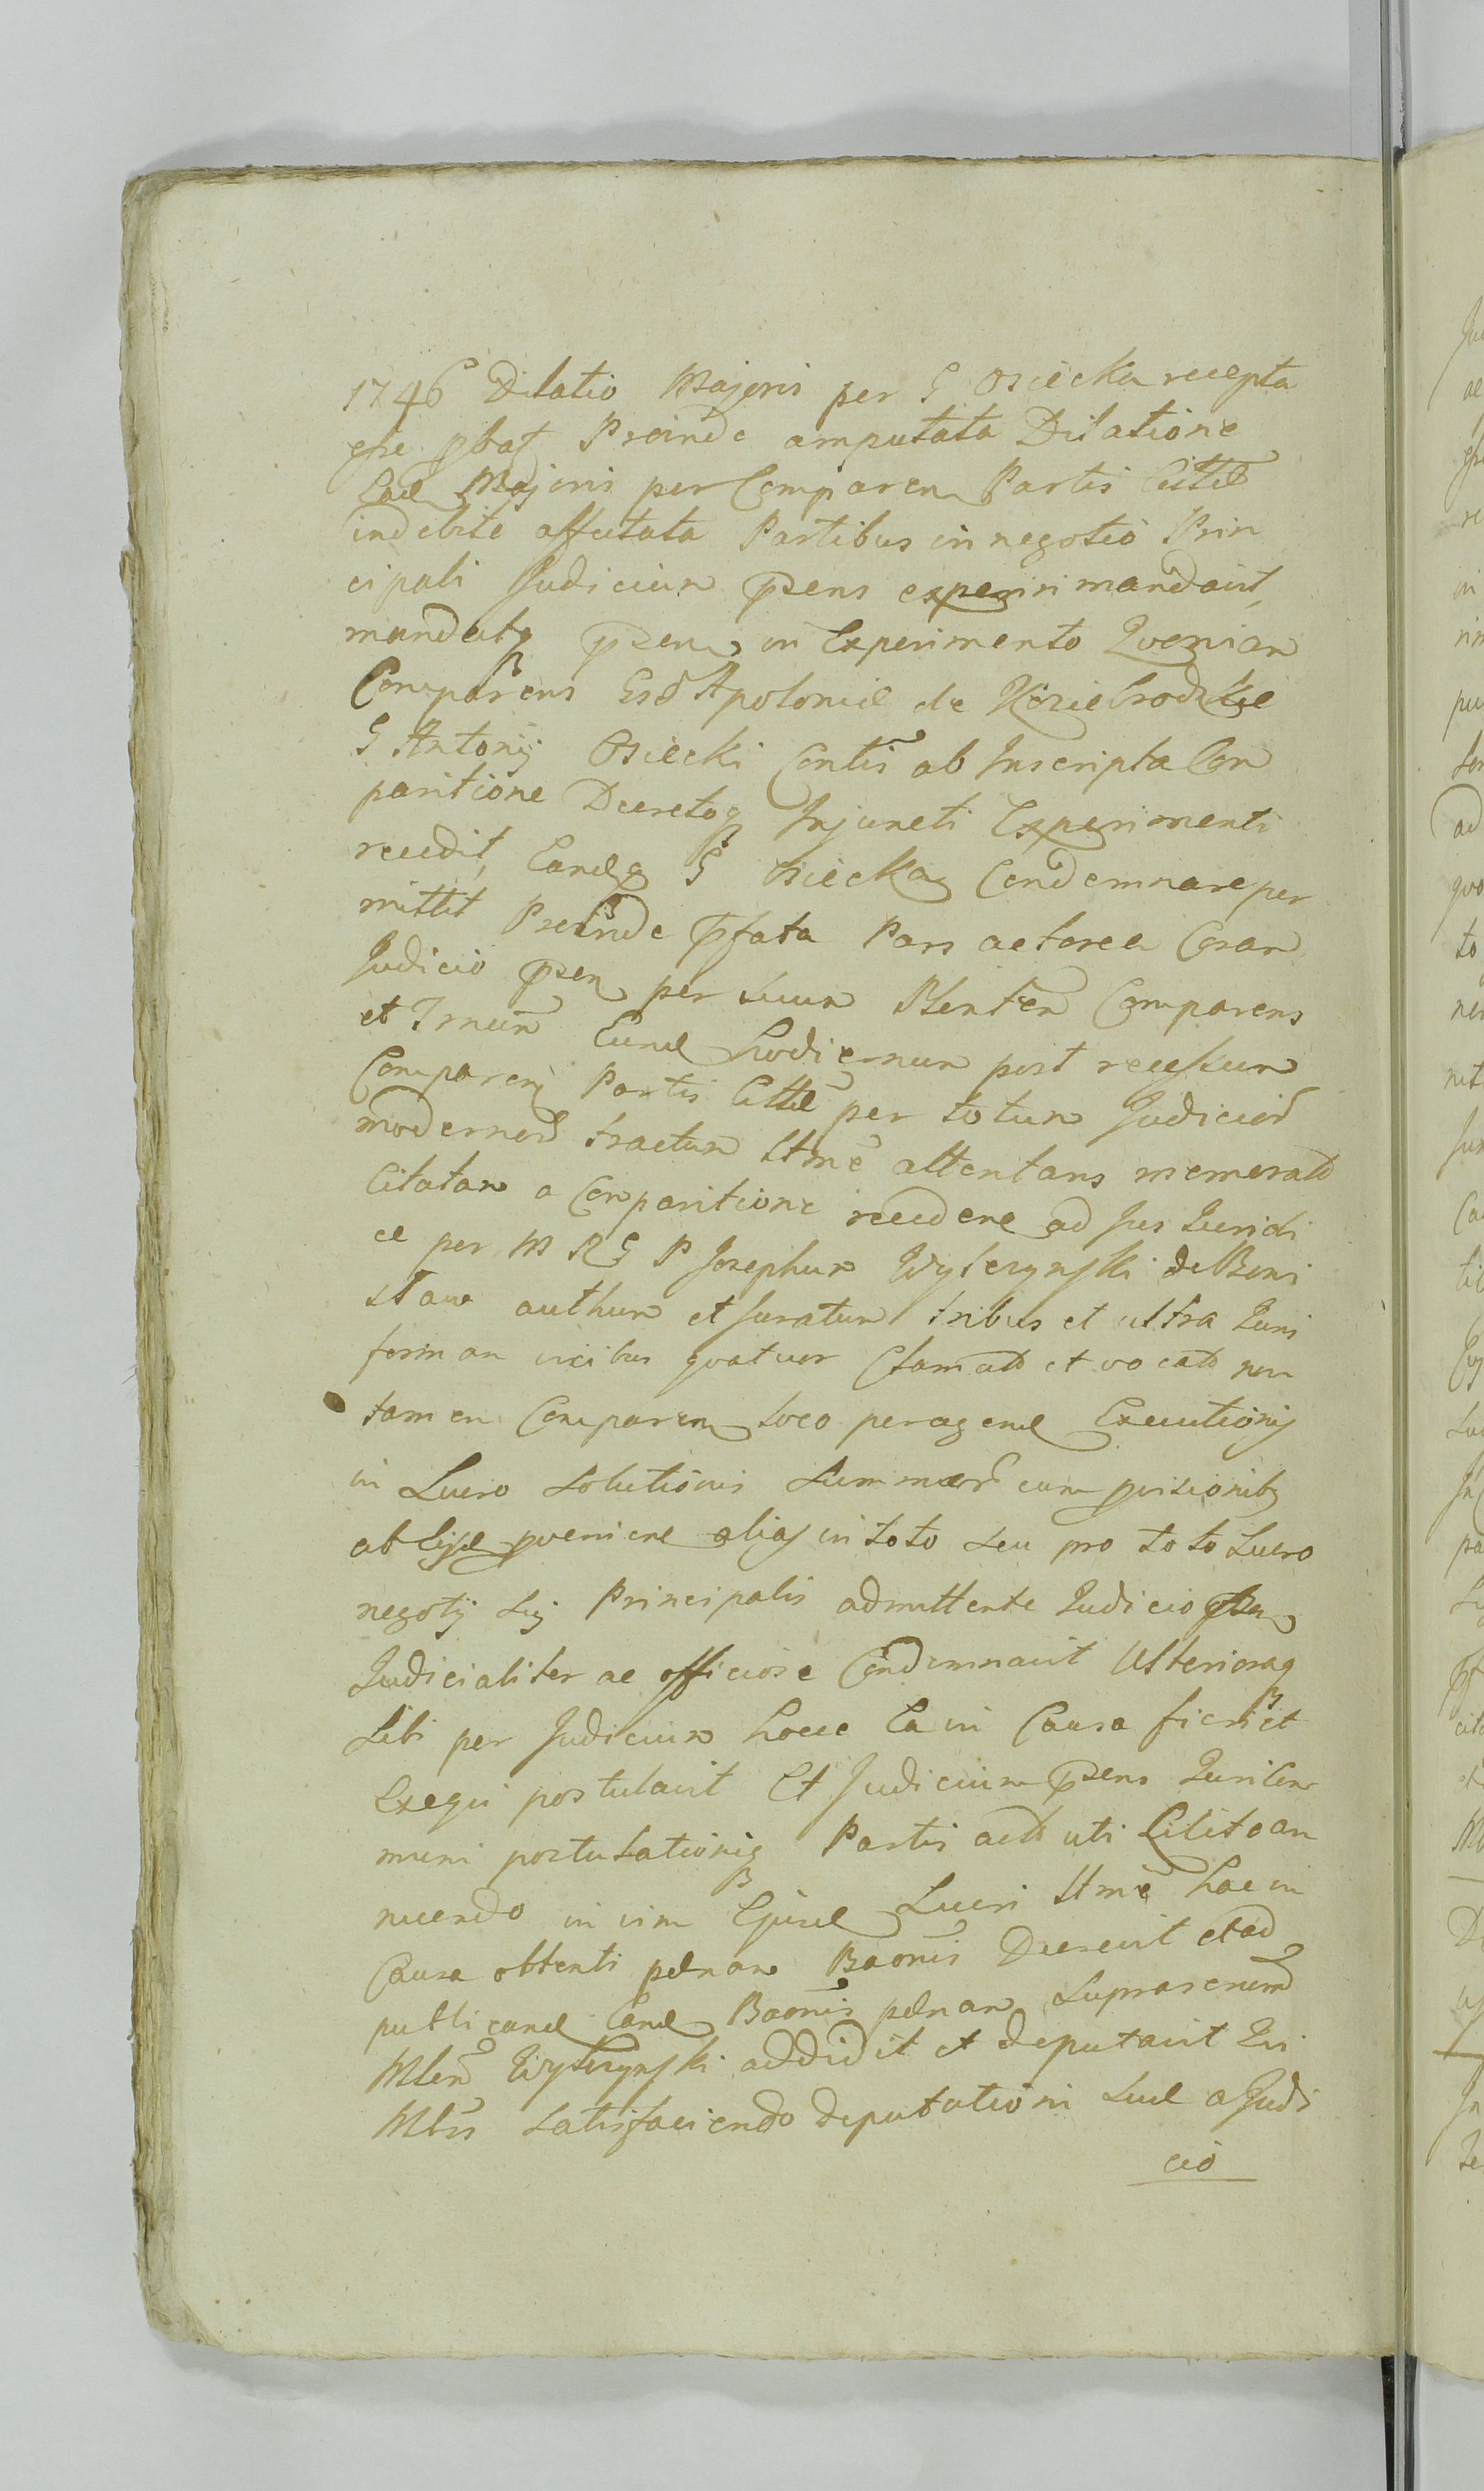 1746 Dilatio Majoris per G Osiecka recepta
esse pbat Proinde amputata Dilatione
Ead Majoris per Comparen Partis Cittæ
indebite affectata Partibus in negotio Prin
cipali Judicium psens experiri mandavit,
mandatoq psen in Experimento Quoniam
Comparens Gsd Apoloniæ de Koziebrodzkie
G Antonij Osiecki Contis ab Inscripta Com
paritione Decretoq Injuncti Experimenti
recedit, Eandq G Osiecka Condemnare per
mittit Proinde pfata Pars actorea Coram
Judicio psen per suum Plenten Comparens
et Trnum Eund hodiernum post recessum
Comparen Partis Cittæ per totum Judicior
modernor tractum Ltme attentans memorato
Citatam a Comparitione recedere ad Jus Juridi
ce per M R G P Josephum Wyleczynski de Boni
slaw authum et Juratum tribus et ultra Juris
formam vicibus quatuor clamato et vocato non
tamen Comparen loco peragend Executionis
in Lucro solutionis summar cum
ab provenire alias in toto seu pro toto Lucro
negotij sui Principalis admittente Judicio psen
Judicialiter ac officiose Condemnavit Ulterioraq
sibi per Judicium hocce Ea in Causa fieri et
Exequi postulavit Et Judicium psens Juri Com
muni postulationiq Partis acto uti Licito an
nuendo in vim Ejusd Lucri Ltme hac in
Causa obtenti pdnam Baonis Decrevit et ad
publicand Eand Baonis pdnam suprascrium
Mlem Wyleczynski addidit et deputavit Qui
Mlis satisfaciendo deputationi suæ a Judi
cio